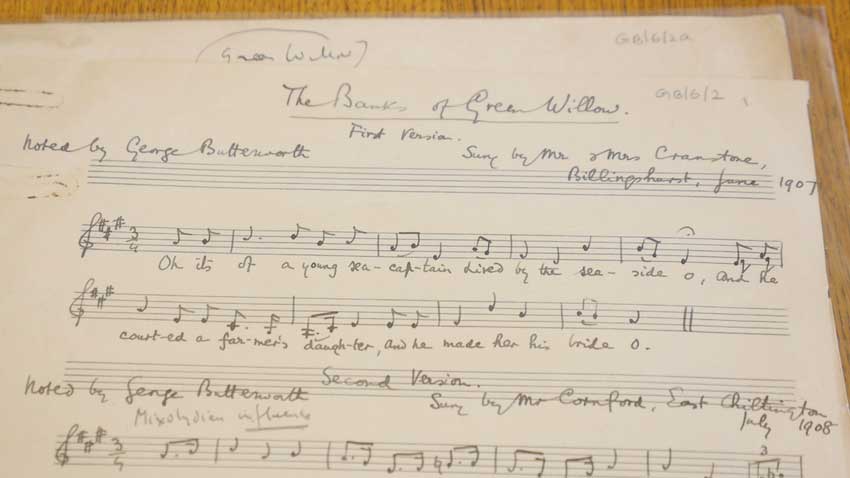 Green Willow
GB/6/2a
The Banks of Green Willow.
GB/6/2
First Version.
Noted by George Butterworth
Sung by Mr & Mrs Cranstone,
Billingshurst, June 1907
3/4
Oh it's of a young sea-cap-tain lived by the sea-side o, and he
court-ed a far-mer's daugh-ter, and he made her his bride o.
Second Version.
Noted by George Butterworth
Sung by Mr Cornford, East Chiltington
July 1908
Mixolydian influence
3/4
3